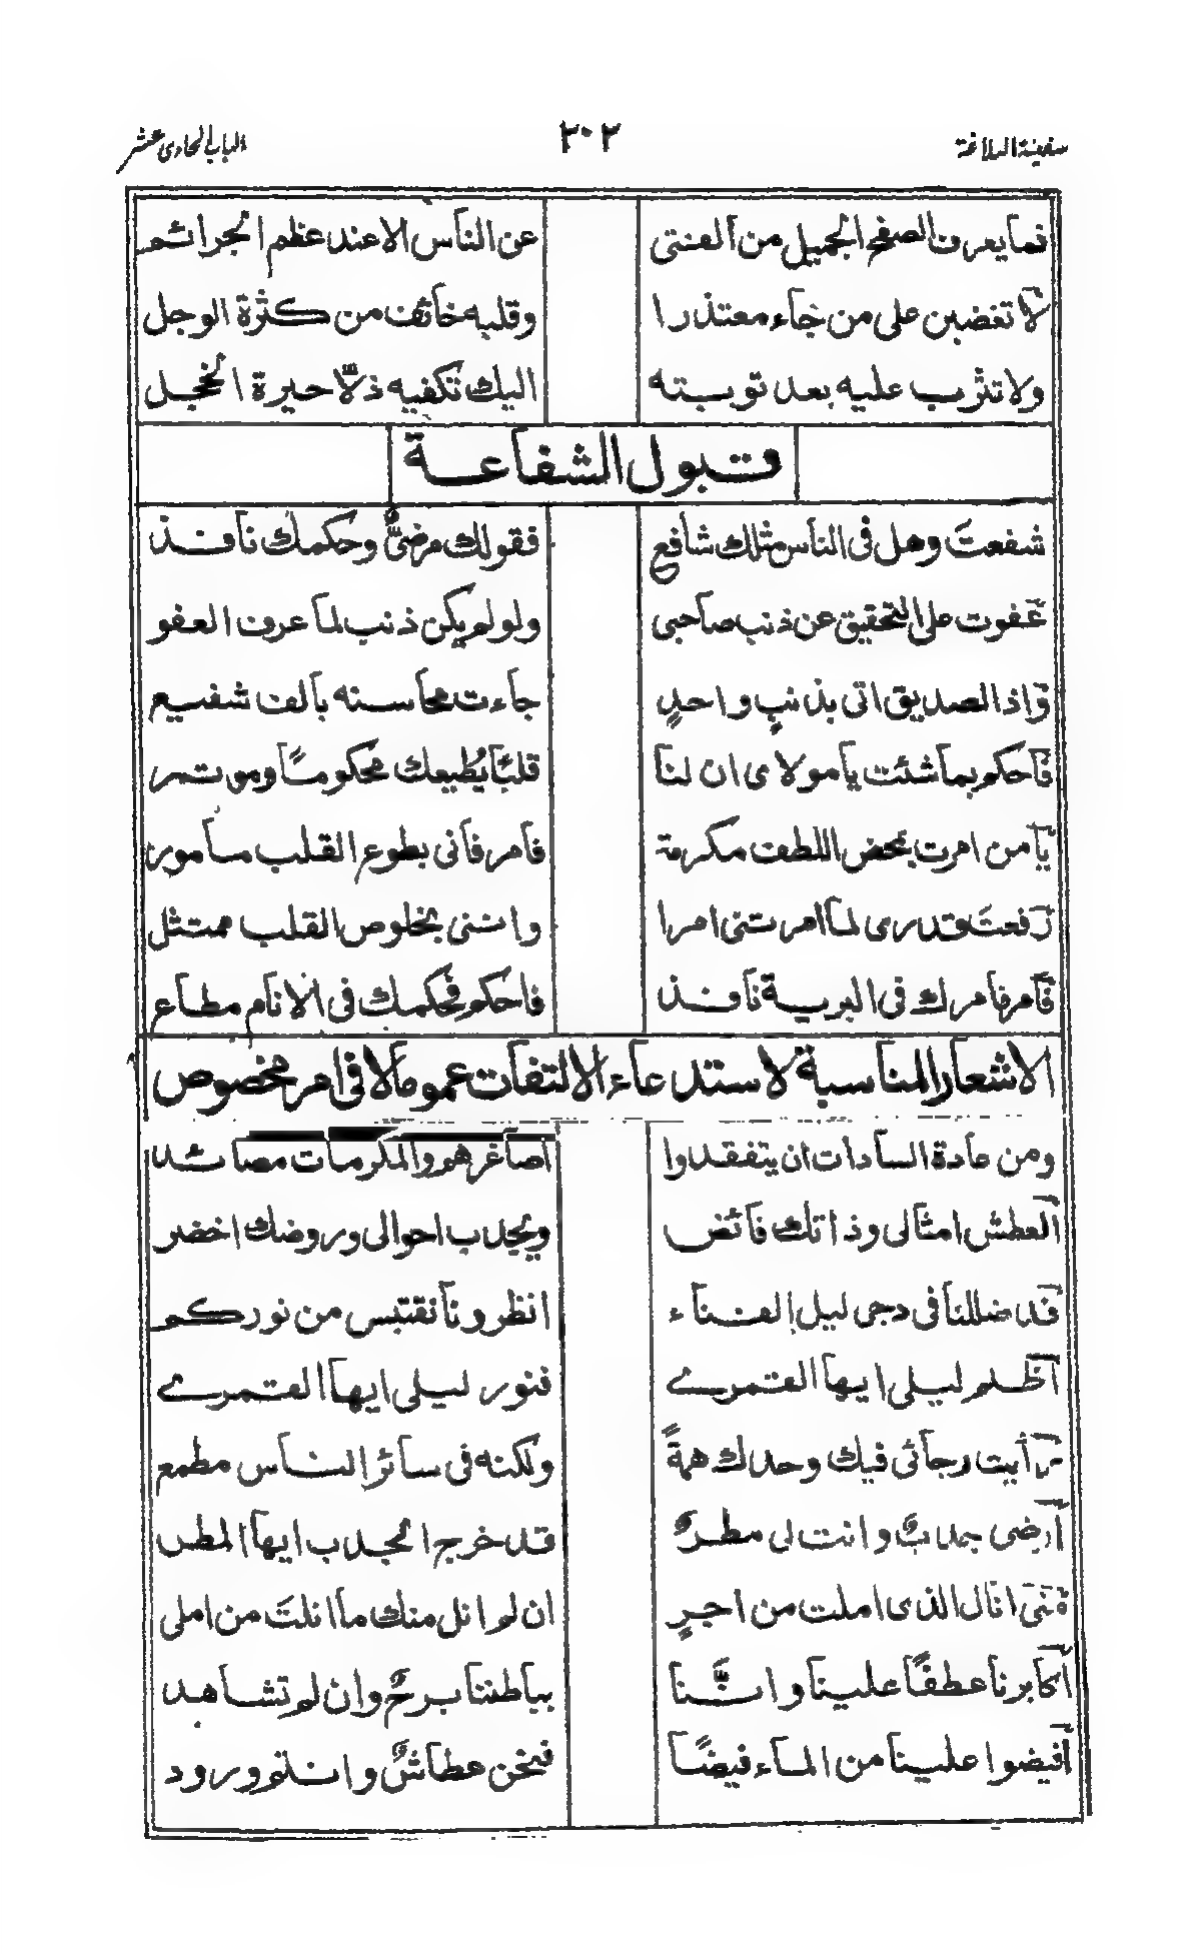 سفينة البلاغة ٣٠٢ الباب الحادى عشر
فما يعرف الصفح الجميل من الفتى عن الناس الا عند عظم الجرائم
لا تغضبن على من جاء معتذرا وقلبه خائف من كثرة الوجل
ولا تثرب عليه بعد توبته اليك تكفيه ذلّا حيرة الخجل
قبول الشفاعة
شفعتَ وهل فى الناس مثلك شافع فقولك مرضىٌّ وحكمك نافذ
عفوت على التحقيق عن ذنب صاحبى ولو لم يكن ذنب لما عرف العفو
واذا الصديق اتى بذنبٍ واحدٍ جاءت محاسنه بالف شفيع
فاحكم بما شئت يا مولاى ان لنا قلبًا يُطيعك محكومًا وموتمر
يا من امرت بمحض اللطف مكرمة فامر فانى بطوع القلب مأمور
رفعتَ قدرى لما امرتنى امرا واننى بخلوص القلب ممتثل
فأمر فامرك فى البرية نافذ فاحكم فحكمك فى الانام مطاع
الاشعار المناسبة لاستدعاء الالتفات عموما لا فى امر مخصوص
ومن عادة السادات ان يتفقدوا اصاغرهم والمكرمات مصائد
العطش امثالى وذاتك فائض ويجدب احوالى وروضك اخضر
قد ضللنا فى دجى ليل الفناء انظرونا نقتبس من نوركم
اظلم ليلى ايها القمرى فنور ليلى ايها القمرى
رأيت رجائى فيك وحدك همةً ولكنه فى سائر الناس مطمع
ارضى جدبٌ وانت لى مطرٌ قد خرج المجدب ايها المطر
متى انال الذى املت من اجرٍ ان لم انل منك ما انلتَ من املى
اكابرنا عطفًا علينا واننا بباطننا برحٌ وان لم تشاهد
افيضوا علينا من الماء فيضًا فنحن عطاشٌ وانتم ورود